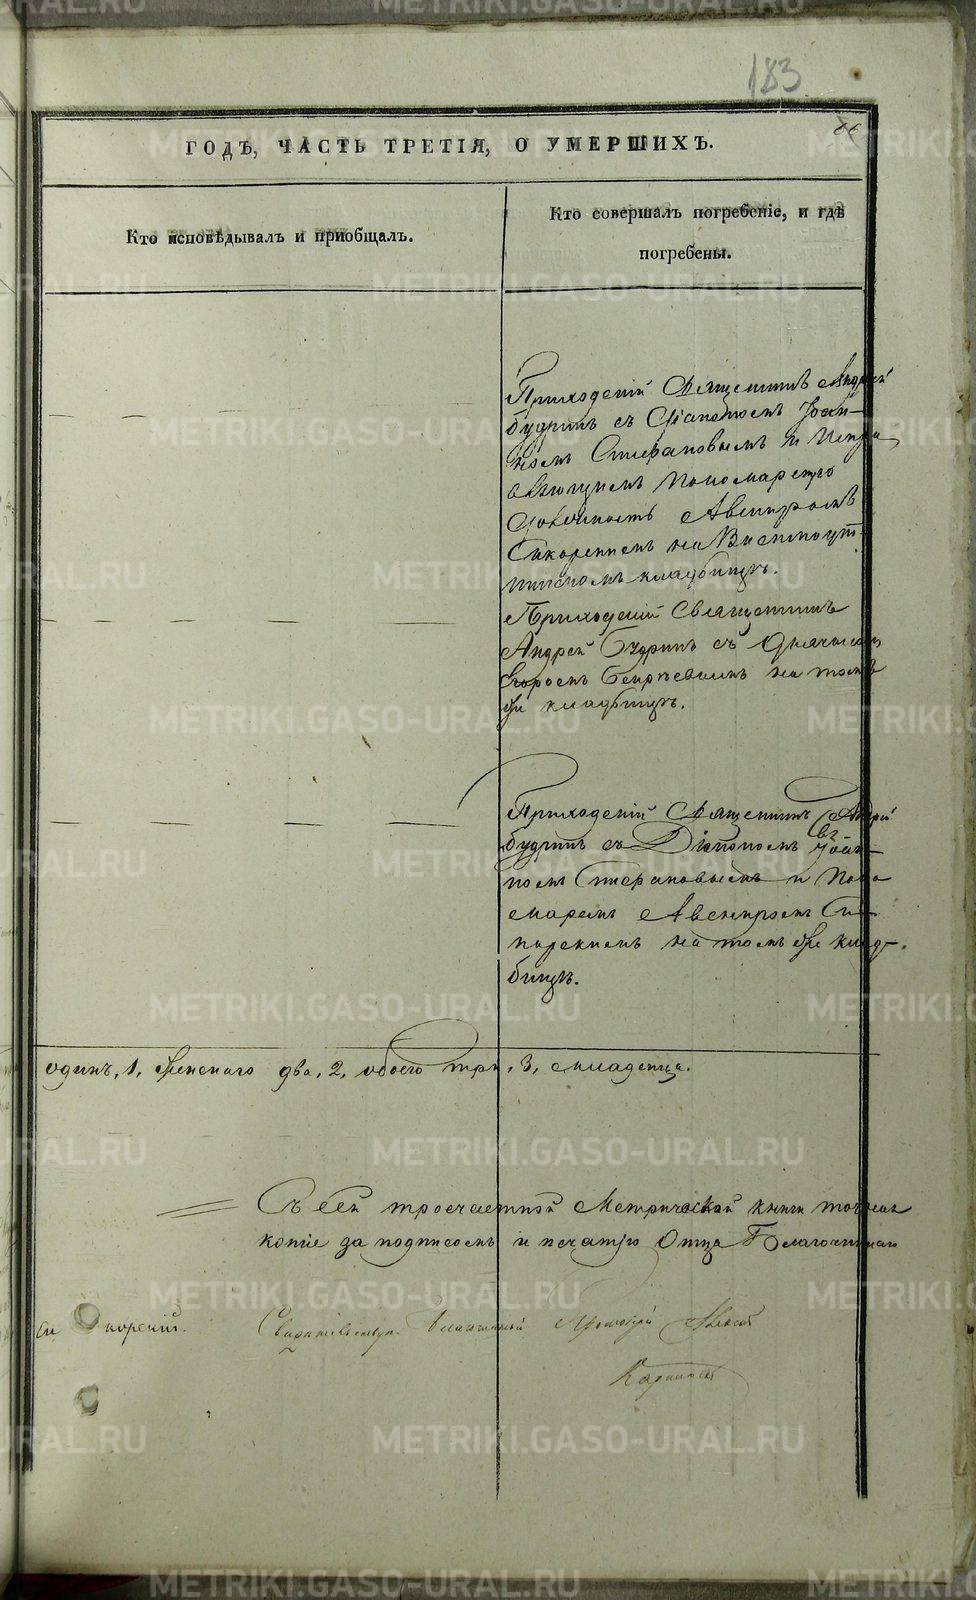 183
ГОДЪ, ЧАСТЬ ТРЕТІЯ, О УМЕРШИХЪ.
Кто исповѣдывалъ и приобщалъ.
Кто совершалъ погребеніе, и гдѣ
погребены.
Приходскій Священникъ Андрей
Будринъ съ Діакономъ Іоан-
номъ Стефановымъ и Испра
вляющимъ Пономарскую
должность Авениромъ
Сикорскимъ на
кладбищѣ.
Приходскій Священникъ
Андрей Будринъ съ Дьячкомъ
Егоромъ на томъ
же кладбищѣ.
Приходскій Священникъ Андрей
Будринъ съ Діакономъ Іоан-
номъ Стефановымъ и Поно
маремъ Авениромъ Си-
корскимъ на томъ же клад-
бищѣ.
одинъ, 1, женскаго два, 2, обоего три, 3, младенца.
Съ сей троечастной Метрической книги точная
копіе за подписомъ и печатію Отца Благочиннаго
Си корскій.
Свидѣтельствовалъ Благочинный Протоіерей
METRIKI.GASO-URAL.RU